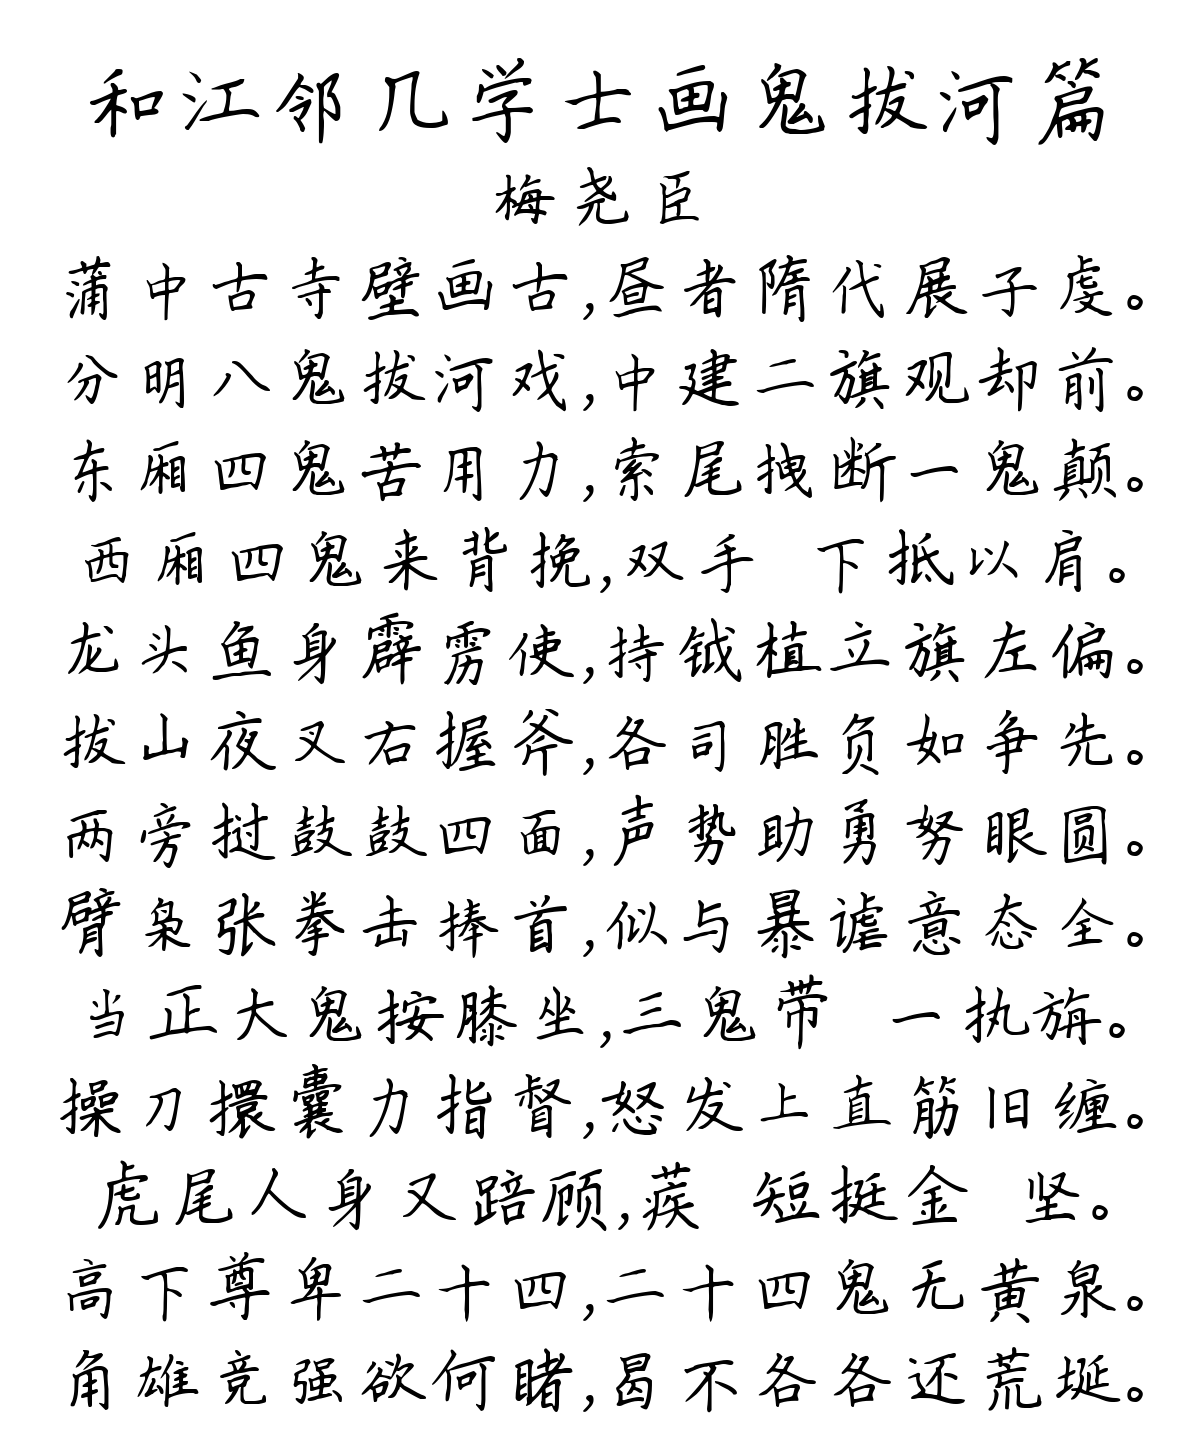 和江邻几学士画鬼拔河篇
梅尧臣
蒲中古寺壁画古,昼者隋代展子虔。
分明八鬼拔河戏,中建二旗观却前。
东厢四鬼苦用力,索尾拽断一鬼颠。
西厢四鬼来背挽,双手 下抵以肩。
龙头鱼身霹雳使,持钺植立旗左偏。
拔山夜叉右握斧,各司胜负如争先。
两旁挝鼓鼓四面,声势助勇努眼圆。
臂枭张拳击捧首,似与暴谑意态全。
当正大鬼按膝坐,三鬼带 一执旃。
操刀擐囊力指督,怒发上直筋旧缠。
虎尾人身又踣顾,蒺 短挺金 坚。
高下尊卑二十四,二十四鬼无黄泉。
角雄竞强欲何睹,曷不各各还荒埏。